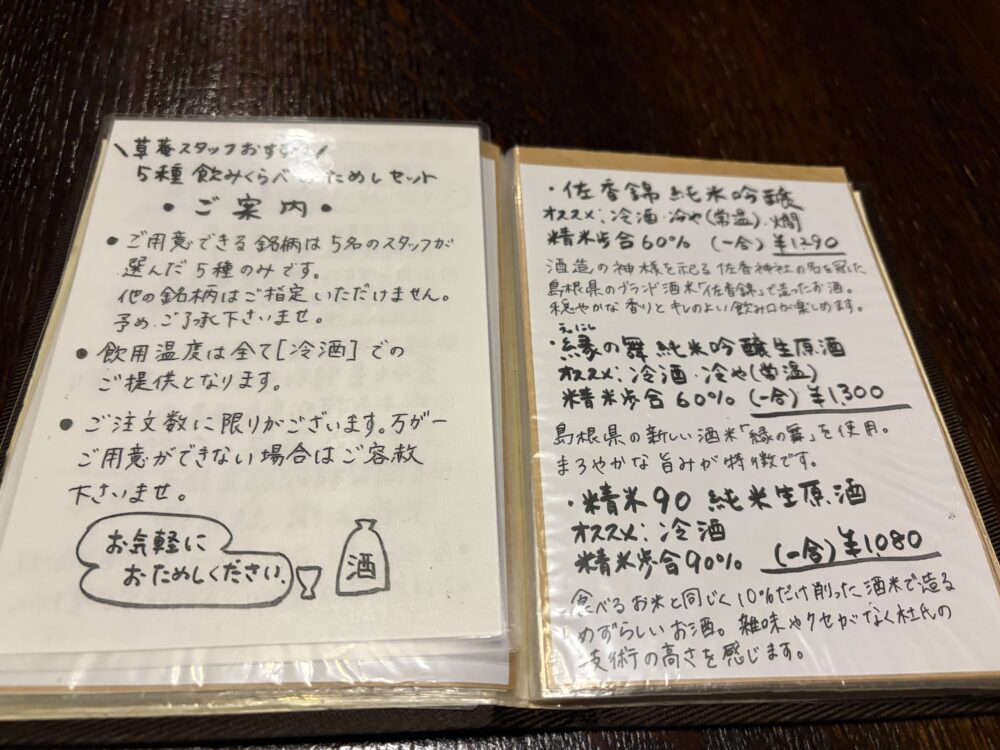 草菴スタッフおすすめ
5種飲みくらべ ためしセット
・ご案内・
● ご用意できる銘柄は5名のスタッフが
選んだ5種のみです。
他の銘柄はご指定いただけません。
予めご了承下さいませ。
● 飲用温度は全て[冷酒]での
ご提供となります。
● ご注文数に限りがございます。万が一
ご用意ができない場合はご容赦
下さいませ。
お気軽に
おためしください。
酒
・佐香錦 純米吟醸
オススメ:冷酒・冷や(常温)・燗
精米歩合60% (一合) ¥1,290
酒造の神様を祀る佐香神社の名を冠した
島根県のブランド酒米「佐香錦」で造ったお酒。
穏やかな香りとキレのよい飲み口が楽しめます。
えにし
・縁の舞 純米吟醸生原酒
オススメ:冷酒・冷や(常温)
精米歩合60% (一合) ¥1,300
島根県の新しい酒米「縁の舞」を使用。
まろやかな旨みが特徴です。
・精米90 純米生原酒
オススメ:冷酒
精米歩合90% (一合) ¥1,080
食べるお米と同じく10%だけ削った酒米で造る
めずらしいお酒。雑味やクセがなく杜氏の
技術の高さを感じます。